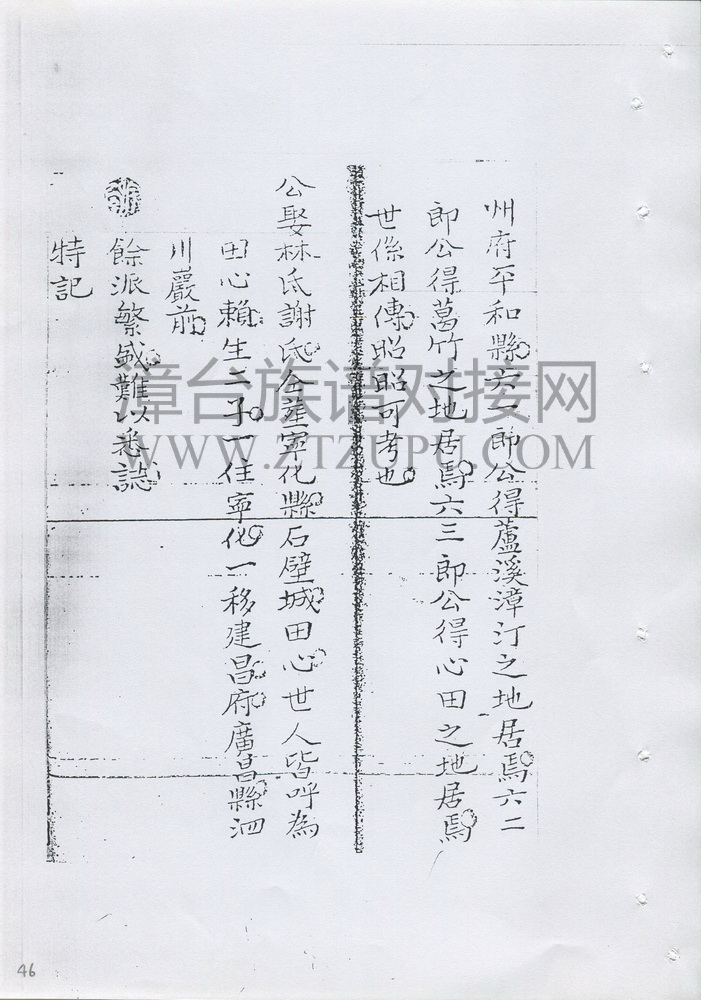 州府平和縣六一郎公得蘆溪漳汀之地居焉六二
郎公得葛竹之地居焉六三郎公得心田之地居焉
世係相傳昭昭可考也
公娶林氏謝氏仝葬寧化縣石壁城田心世人皆呼為
田心賴生二子一住寧化一移建昌府廣昌縣泗
川巖前
餘派繁盛難以悉誌
特記
漳台族谱对接网
WWW.ZTZUPU.COM
46